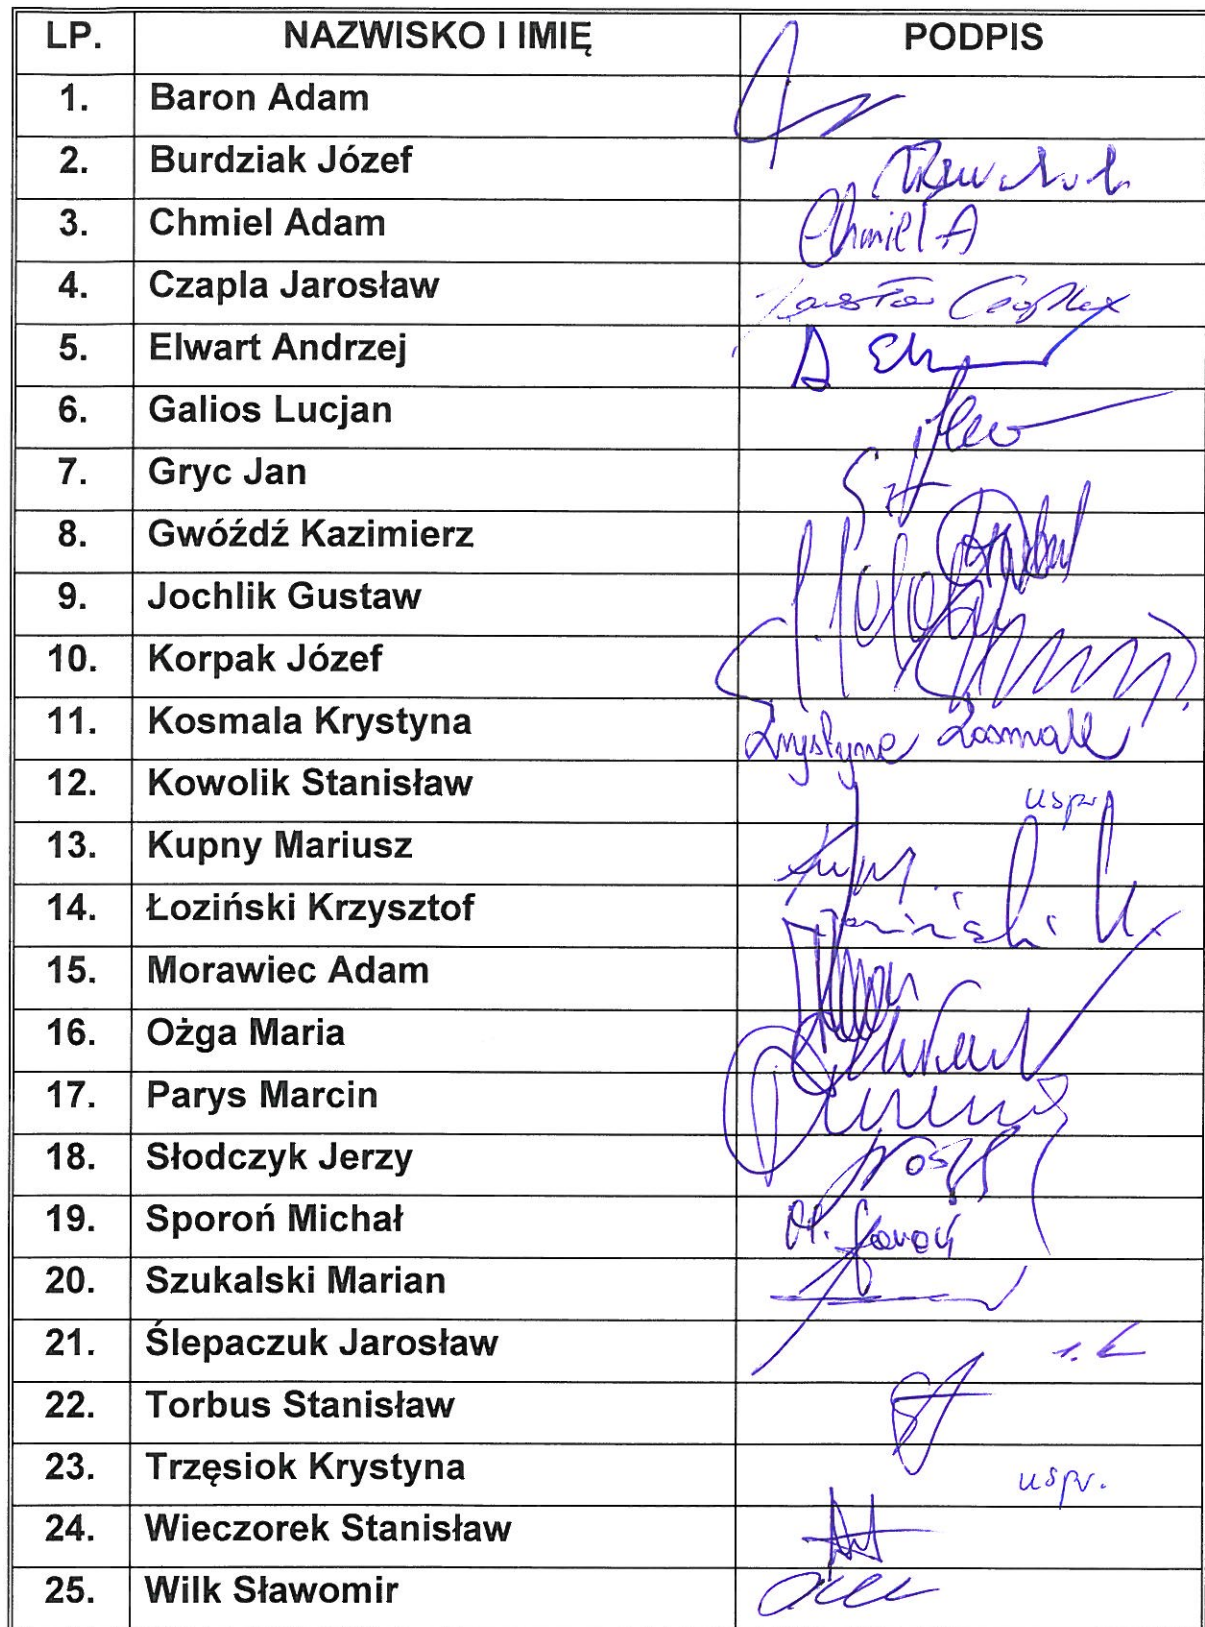 LP. NAZWISKO I IMIĘ PODPIS
1. Baron Adam
2. Burdziak Józef
3. Chmiel Adam Chmiel A
4. Czapla Jarosław
5. Elwart Andrzej
6. Galios Lucjan
7. Gryc Jan
8. Gwóźdź Kazimierz
9. Jochlik Gustaw
10. Korpak Józef
11. Kosmala Krystyna Krystyna Kosmala
12. Kowolik Stanisław uspr.
13. Kupny Mariusz
14. Łoziński Krzysztof
15. Morawiec Adam
16. Ożga Maria
17. Parys Marcin
18. Słodczyk Jerzy
19. Sporoń Michał
20. Szukalski Marian
21. Ślepaczuk Jarosław
22. Torbus Stanisław
23. Trzęsiok Krystyna uspr.
24. Wieczorek Stanisław
25. Wilk Sławomir